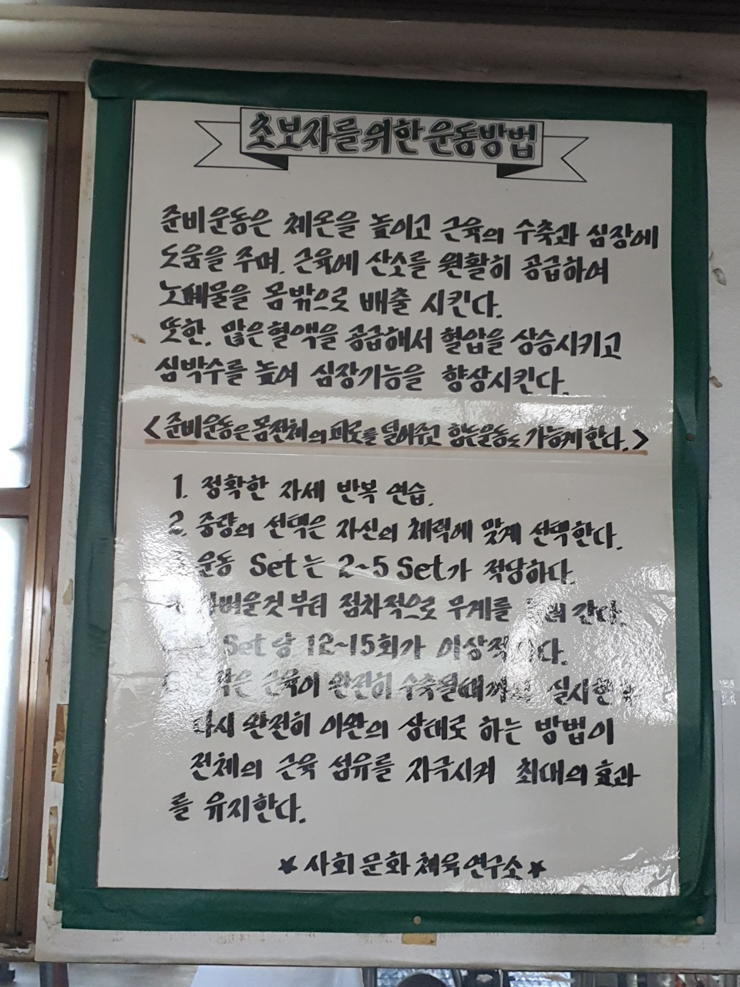 초보자를 위한 운동방법
준비운동은 체온을 높이고 근육의 수축과 심장에
도움을 주며, 근육에 산소를 원활히 공급하여
노폐물을 몸밖으로 배출 시킨다.
또한, 많은 혈액을 공급해서 혈압을 상승시키고
심박수를 높여 심장기능을 향상시킨다.
<준비운동은 몸전체의 피로를 덜어주고 힘든운동도 가능케한다.>
1. 정확한 자세 반복 연습.
2. 중량의 선택은 자신의 체력에 맞게 선택한다.
3. 운동 Set는 2~5 Set가 적당하다.
부터 점차적으로 무게를 간다.
Set당 12~15회가
근육이 완전히 수축될때까지
다시 완전히 이완의 상태로 하는 방법이
전체의 근육 섬유를 자극시켜 최대의 효과
를 유지한다.
★ 사회 문화 체육 연구소 ★